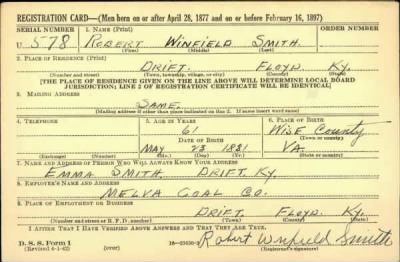 REGISTRATION CARD—(Men born on or after April 28, 1877 and on or before February 16, 1897)
SERIAL NUMBER 1. NAME (Print) ORDER NUMBER
U 578 ROBERT WINFIELD SMITH.
(First) (Middle) (Last)
2. PLACE OF RESIDENCE (Print)
DRIFT. FLOYD. KY.
(Number and street) (Town, township, village, or city) (County) (State)
[THE PLACE OF RESIDENCE GIVEN ON THE LINE ABOVE WILL DETERMINE LOCAL BOARD
JURISDICTION; LINE 2 OF REGISTRATION CERTIFICATE WILL BE IDENTICAL]
3. MAILING ADDRESS
SAME.
[Mailing address if other than place indicated on line 2. If same insert word same]
4. TELEPHONE 5. AGE IN YEARS 6. PLACE OF BIRTH
61 WISE COUNTY
DATE OF BIRTH (Town or county)
MAY 23 1881 VA.
(Exchange) (Number) (Mo.) (Day) (Yr.) (State or country)
7. NAME AND ADDRESS OF PERSON WHO WILL ALWAYS KNOW YOUR ADDRESS
EMMA SMITH DRIFT, KY.
8. EMPLOYER'S NAME AND ADDRESS
MELVA COAL CO.
9. PLACE OF EMPLOYMENT OR BUSINESS
DRIFT. FLOYD. KY.
(Number and street or R. F. D. number) (Town) (County) (State)
I AFFIRM THAT I HAVE VERIFIED ABOVE ANSWERS AND THAT THEY ARE TRUE.
D. S. S. Form 1
(Revised 4-1-42) (over) Robert Winfield Smith
(Registrant's signature)